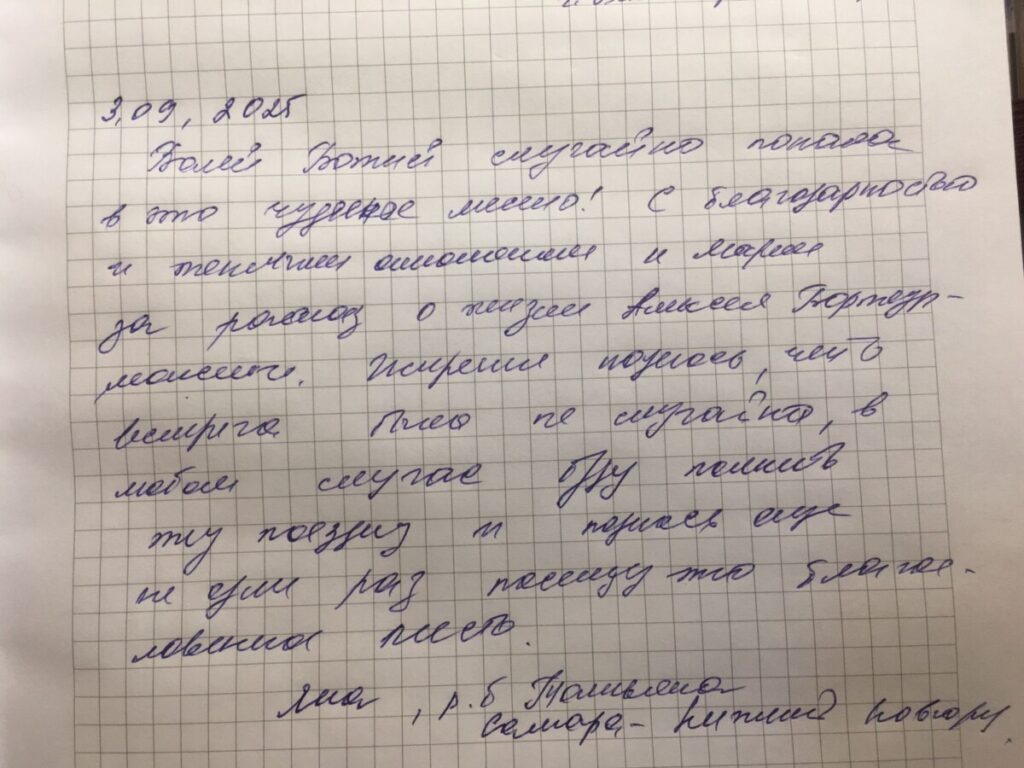 3.09, 2025
Волей Божией случайно попала
в это чудесное место! С благодарностью
и теплыми 
за рассказ о жизни Алексея Бортсур-
манского. Искренне надеюсь, что
встреча была не случайна, в
любом случае буду помнить
эту поездку и надеюсь еще
не один раз посещу это благос-
ловенное место.
Яна, р.б Татьяна
Самара - Нижний Новгород